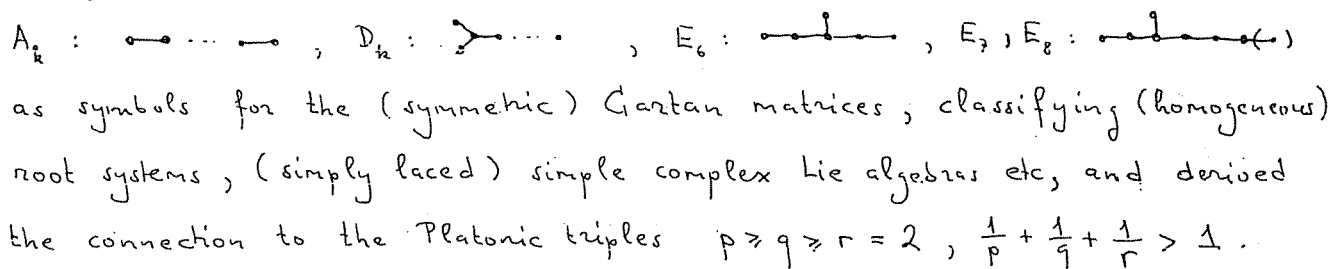 A_k : ... , D_k : ... , E_6 : , E_7 , E_8 : ( )
as symbols for the (symmetric) Cartan matrices, classifying (homogeneous)
root systems, (simply laced) simple complex Lie algebras etc, and derived
the connection to the Platonic triples p ≥ q ≥ r = 2 , 1/p + 1/q + 1/r > 1 .